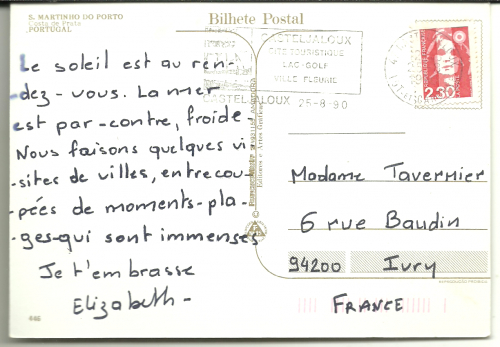 S. MARTINHO DO PORTO
Costa de Prata
PORTUGAL
Bilhete Postal
CASTELJALOUX
SITE TOURISTIQUE
LAC-GOLF
VILLE FLEURIE
CASTELJALOUX 25-8-90
2,30
Le soleil est au ren-
dez-vous. La mer
est par-contre, froide-
Nous faisons quelques vi-
-sites de villes, entrecou-
-pées de moments-pla-
-ges-qui sont immenses
Je t'embrasse
Elizabeth-
Madame Tavernier
6 rue Baudin
94200 Ivry
FRANCE